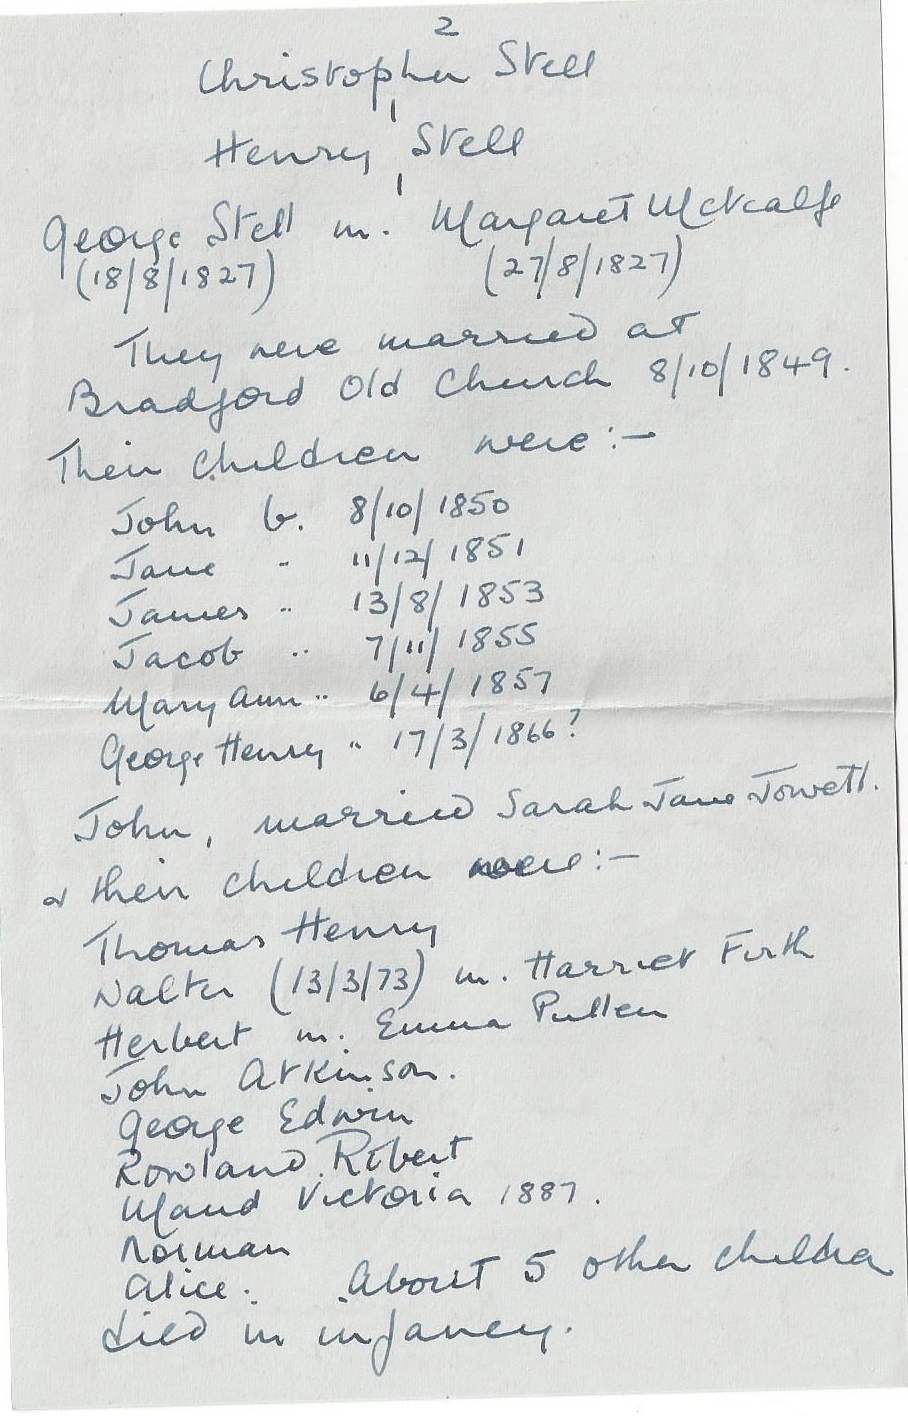 2
Christopher Stell
Henry Stell
George Stell m. Margaret Metcalfe
(18/8/1827) (27/8/1827)
They were married at
Bradford Old Church 8/10/1849.
Their children were:-
John b. 8/10/1850
Jane " 11/12/1851
James " 13/8/1853
Jacob " 7/11/1855
Mary Ann " 6/4/1857
George Henry " 17/3/1866?
John, married Sarah Jane Jowett.
& their children were:-
Thomas Henry
Walter (13/3/73) m. Harriet Firth
Herbert m. Emma Pullen
John Atkinson.
George Edwin
Rowland Robert
Maud Victoria 1887.
Norman
Alice. About 5 other children
died in infancy.